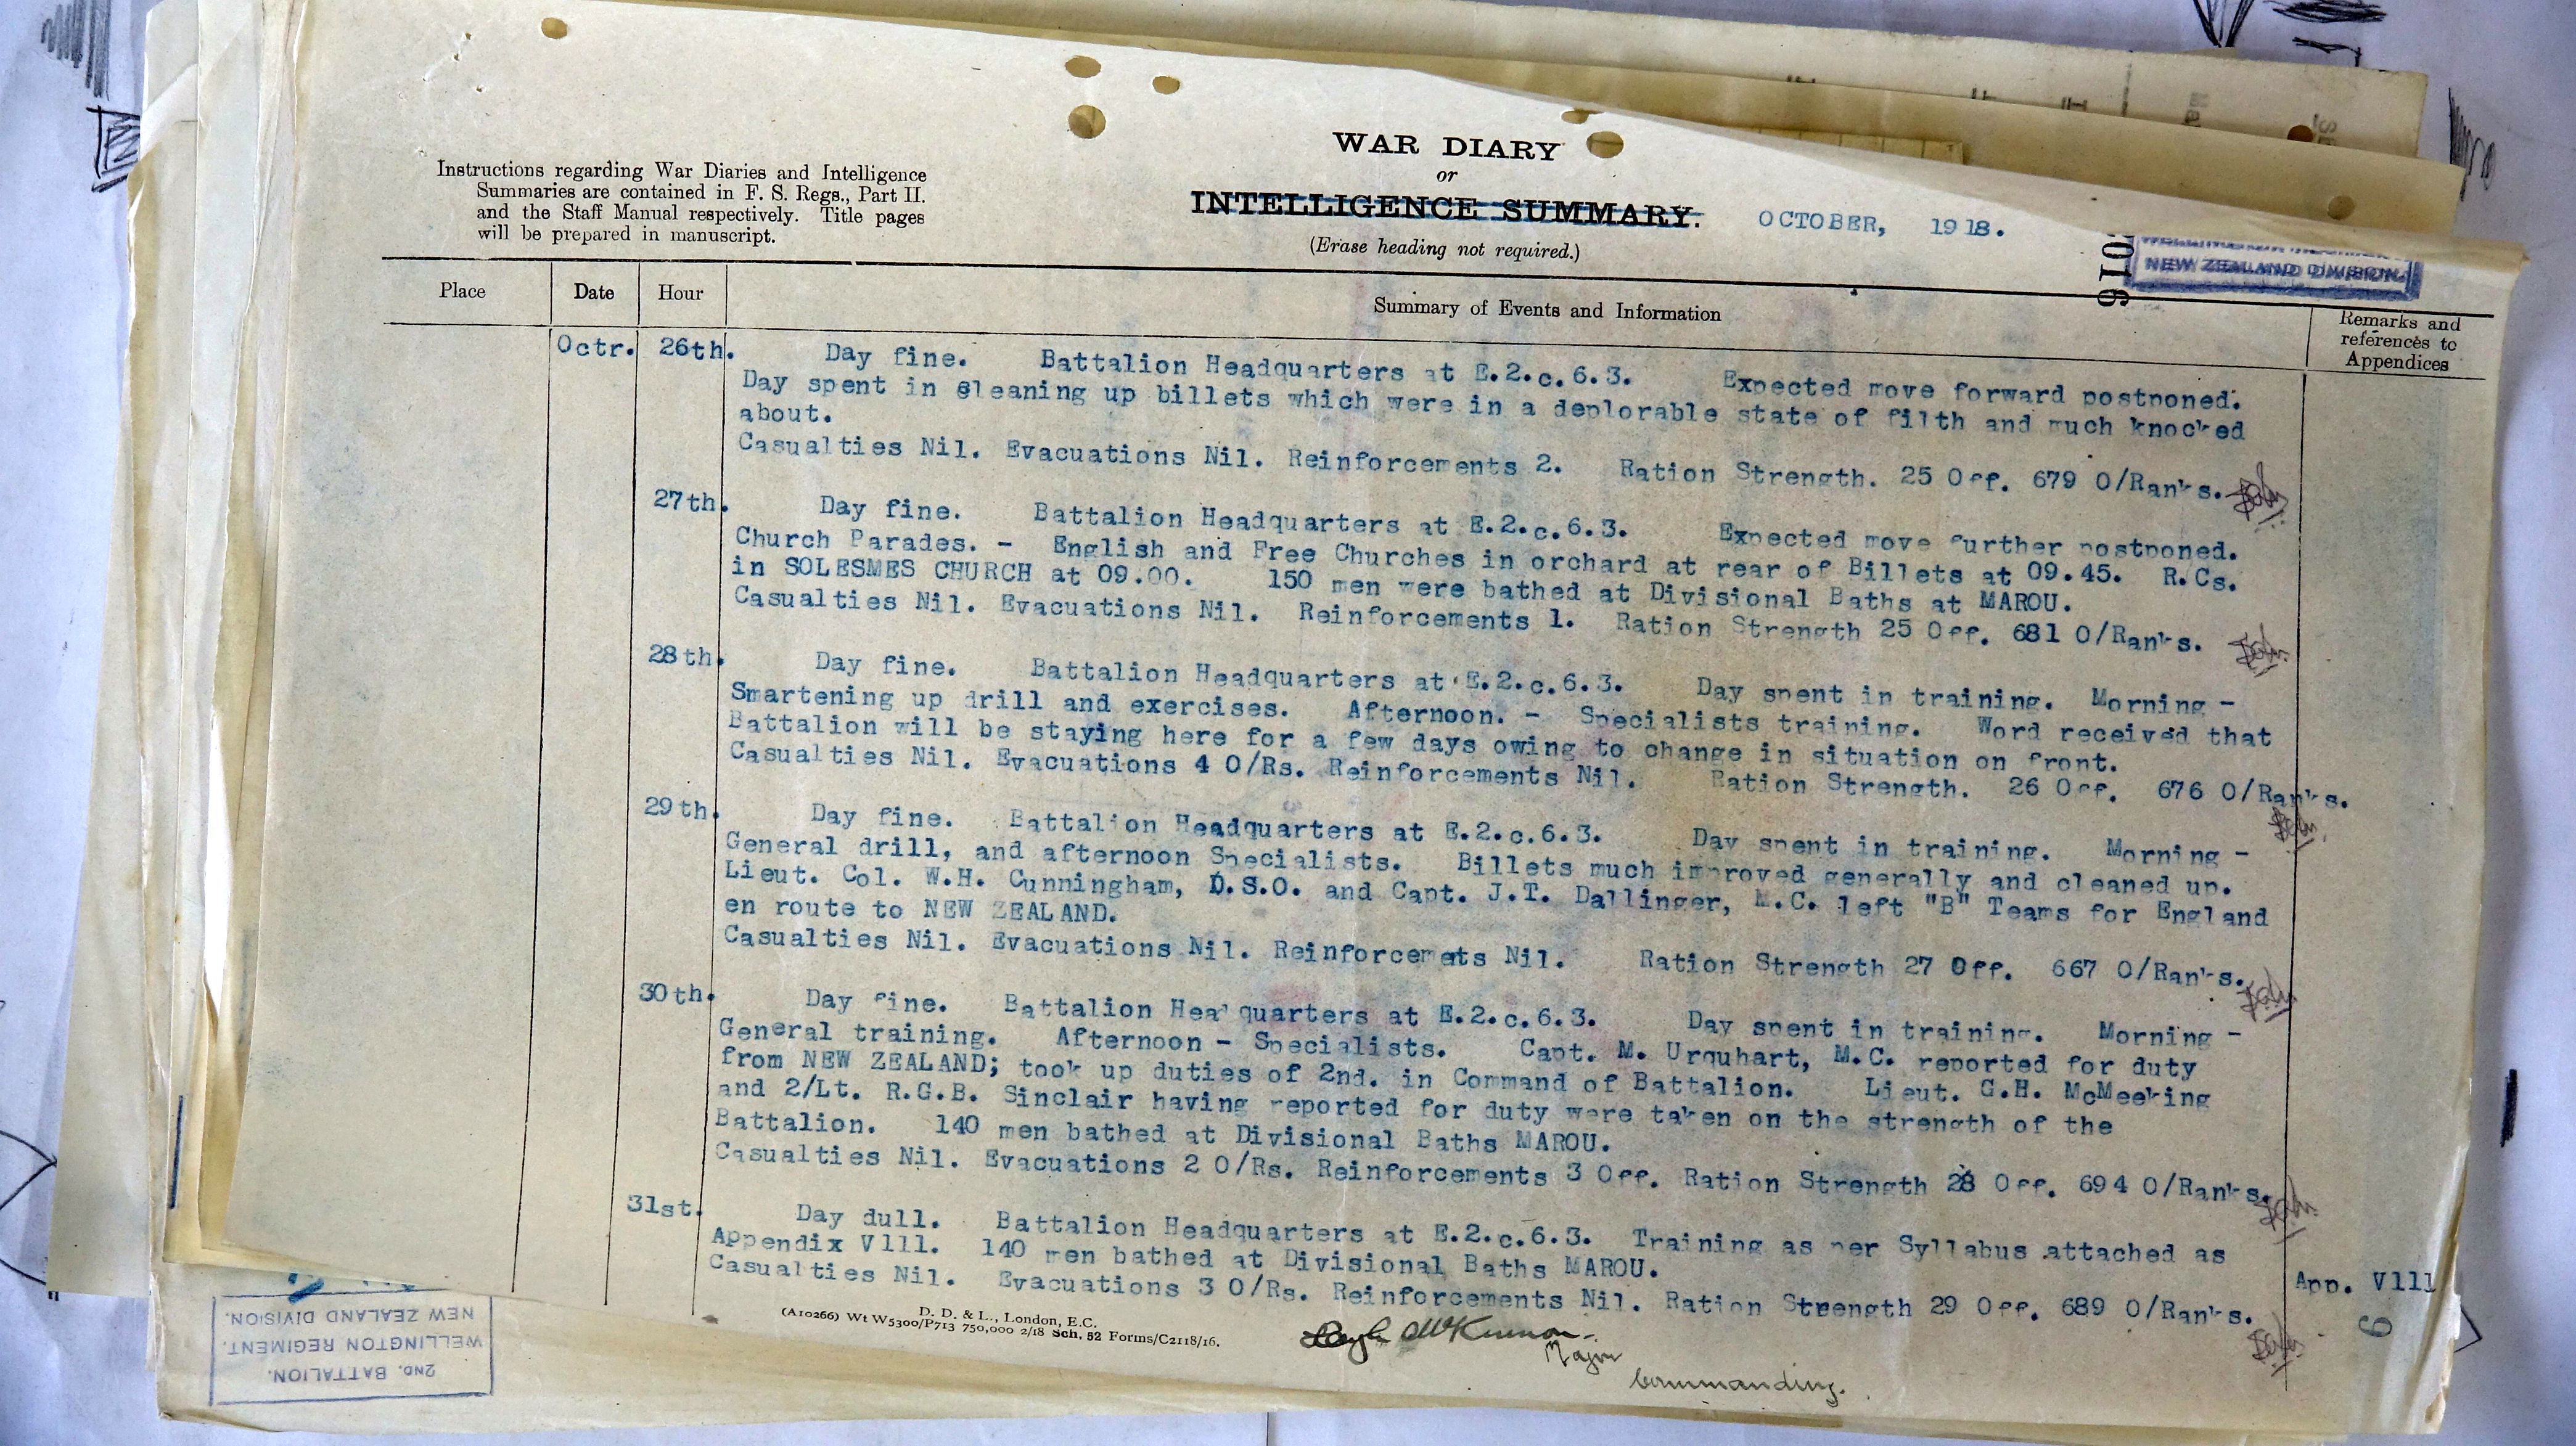 Instructions regarding War Diaries and Intelligence
Summaries are contained in F. S. Regs., Part II.
and the Staff Manual respectively. Title pages
will be prepared in manuscript.
WAR DIARY
or
INTELLIGENCE SUMMARY.
(Erase heading not required.)
OCTOBER, 1918.
NEW ZEALAND DIVISION.
Place Date Hour Summary of Events and Information Remarks and
references to
Appendices
Octr. 26th. Day fine. Battalion Headquarters at E.2.c.6.3. Expected move forward postponed.
Day spent in cleaning up billets which were in a deplorable state of filth and much knocked
about.
Casualties Nil. Evacuations Nil. Reinforcements 2. Ration Strength. 25 Off. 679 O/Ranks.
27th. Day fine. Battalion Headquarters at E.2.c.6.3. Expected move further postponed.
Church Parades. - English and Free Churches in orchard at rear of Billets at 09.45. R.Cs.
in SOLESMES CHURCH at 09.00. 150 men were bathed at Divisional Baths at MAROU.
Casualties Nil. Evacuations Nil. Reinforcements 1. Ration Strength 25 Off. 681 O/Ranks.
28th. Day fine. Battalion Headquarters at E.2.c.6.3. Day spent in training. Morning -
Smartening up drill and exercises. Afternoon. - Specialists training. Word received that
Battalion will be staying here for a few days owing to change in situation on front.
Casualties Nil. Evacuations 4 O/Rs. Reinforcements Nil. Ration Strength. 26 Off. 676 O/Ranks.
29th. Day fine. Battalion Headquarters at E.2.c.6.3. Day spent in training. Morning -
General drill, and afternoon Specialists. Billets much improved generally and cleaned up.
Lieut. Col. W.H. Cunningham, D.S.O. and Capt. J.T. Dallinger, M.C. left "B" Teams for England
en route to NEW ZEALAND.
Casualties Nil. Evacuations Nil. Reinforcemets Nil. Ration Strength 27 Off. 667 O/Ranks.
30th. Day fine. Battalion Headquarters at E.2.c.6.3. Day spent in training. Morning -
General training. Afternoon - Specialists. Capt. M. Urquhart, M.C. reported for duty
from NEW ZEALAND; took up duties of 2nd. in Command of Battalion. Lieut. G.H. McMeeking
and 2/Lt. R.G.B. Sinclair having reported for duty were taken on the strength of the
Battalion. 140 men bathed at Divisional Baths MAROU.
Casualties Nil. Evacuations 2 O/Rs. Reinforcements 3 Off. Ration Strength 28 Off. 694 O/Ranks.
31st. Day dull. Battalion Headquarters at E.2.c.6.3. Training as per Syllabus attached as
Appendix V111. 140 men bathed at Divisional Baths MAROU. App. V111
Casualties Nil. Evacuations 3 O/Rs. Reinforcements Nil. Ration Strength 29 Off. 689 O/Ranks.
(A10266) Wt W5300/P713 750,000 2/18 Sch. 52 Forms/C2118/16.
D. D. & L., London, E.C.
McKinnon
Major
Commanding.
2ND. BATTALION.
WELLINGTON REGIMENT.
NEW ZEALAND DIVISION.